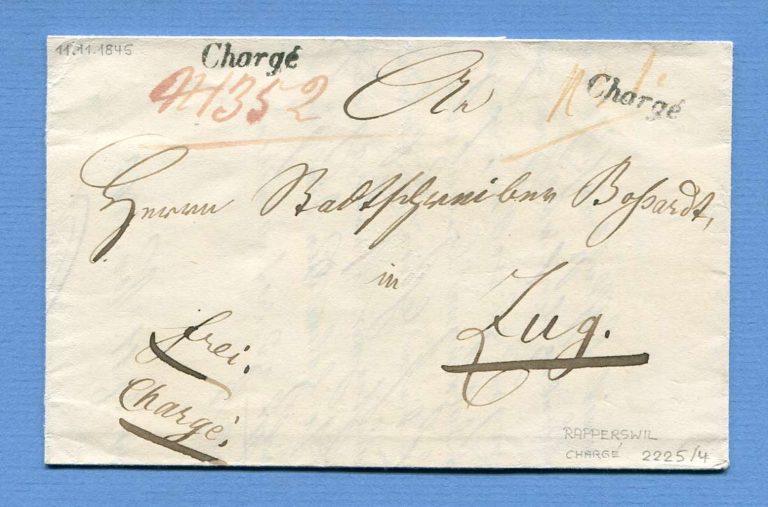 11.11.1845
Chargé
352 An
Chargé
Herrn Stadtschreiber Boßardt,
in
Zug.
frei.
Chargé.
RAPPERSWIL
CHARGÉ 2225/4